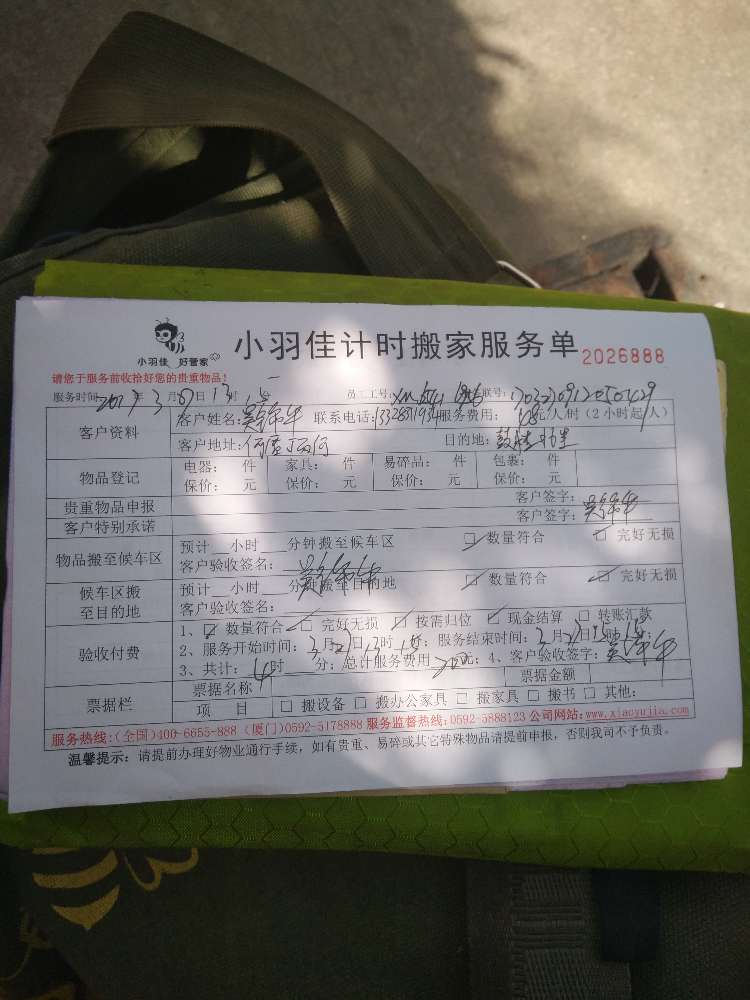 小羽佳 好管家
小羽佳计时搬家服务单 2026888
请您于服务前收拾好您的贵重物品!
服务时间: 2017年3月 日13时15 员工工号: 联号:
客户资料 客户姓名: 联系电话: 服务费用: 元/人/时(2小时起/人)
客户地址: 目的地:
物品登记 电器: 件 家具: 件 易碎品: 件 包裹: 件
保价: 元 保价: 元 保价: 元 保价: 元
贵重物品申报 客户签字:
客户特别承诺 客户签字:
物品搬至候车区 预计__小时___分钟搬至候车区 数量符合 完好无损
客户验收签名:
候车区搬至目的地 预计__小时___分钟搬至目的地 数量符合 完好无损
客户验收签名:
验收付费 1、 数量符合 完好无损 按需归位 现金结算 转账汇款
2、服务开始时间: 3月 日13时15 ; 服务结束时间: 3月 日15时15 ;
3、共计: 4时 分; 总计服务费用 元; 4、客户验收签字:
票据栏 票据名称 票据金额
项 目 搬设备 搬办公家具 搬家具 搬书 其他:
服务热线:(全国)400-6655-888 (厦门)0592-5178888 服务监督热线:0592-5888123 公司网站:www.xiaoyujia.com
温馨提示: 请提前办理好物业通行手续, 如有贵重、易碎或其它特殊物品请提前申报, 否则我司不予负责。